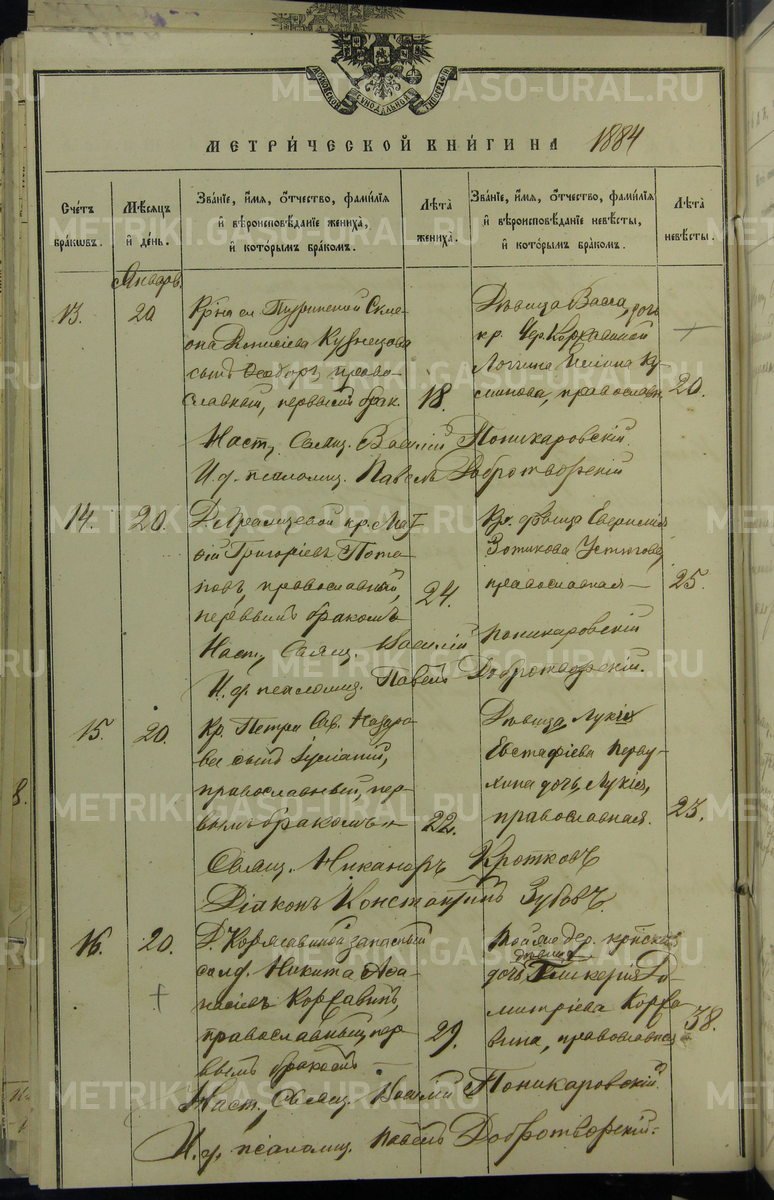 МОСКОВСКОЙ СѴНОДАЛЬНОЙ ТИПОГРАФІИ
МЕТРИ́ЧЕСКОЙ КНИ́ГИ НА 1884
Сче́тъ бра́кѡвъ.
Мѣ́сяцъ и҆ де́нь.
Зва́нїе, и҆́мя, ѻ҆́тчество, фами́лїя и҆ вѣроисповѣ́данїе жениха̀, и҆ кото́рымъ бра́комъ.
Лѣ́та жениха̀.
Зва́нїе, и҆́мя, ѻ҆́тчество, фами́лїя и҆ вѣроисповѣ́данїе невѣ́сты, и҆ кото́рымъ бра́комъ.
Лѣ́та невѣ́сты.
Январь
13.
20
Кр-на сл. Туринской Симе-
она Денисіева Кузнецова
сынъ Ѳеодоръ, право-
славный, первый брак.
18.
Дѣвица Васса, дочь
кр. дер. Коркавиной
Лонгина
православн.
20.
Наст. Свящ. Василій Поникаровскій
И. д. псаломщ. Павелъ Добротворскій
14.
20.
кр. Мат-
ѳій Григоріевъ Пота-
повъ, православный,
первымъ бракомъ
24.
Кр. дѣвица
Зотикова Устюгова,
православная —
25.
Наст. Свящ. Василій Поникаровскій
И. д. псаломщ. Павелъ Добротворскій.
15.
20.
Кр. Петра Сав. Назаро-
ва сынъ Іуліаній,
православный, пер-
вымъ бракомъ
22.
Дѣвица, Лукія
Евстафіева Перву-
хина дочь, Лукія,
православная.
23.
Свящ. Никаноръ Кротковъ
Діаконъ Константинъ Зубовъ.
16.
20.
Д. Коркавиной запасный
солд. Никита Аѳа-
насіевъ Коркавинъ,
православный, пер-
вымъ бракомъ —
29.
Той же дер. кр-нская
дѣвица
дочь Гликерія Ди-
митріева Корка-
вина, православная
38.
Наст. Свящ. Василій Поникаровскій
И. д. псаломщ. Павелъ Добротворскій.
METRIKI.GASO-URAL.RU